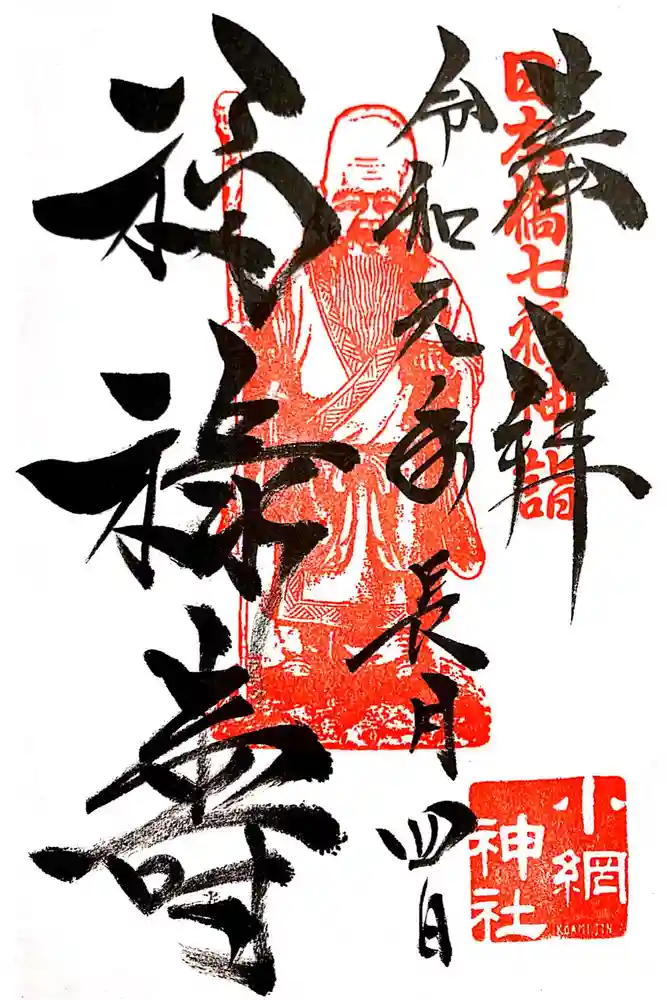 奉拝
日本橋七福神詣
令和元年長月四日
福禄寿
小網
神社
KOAMIJIN